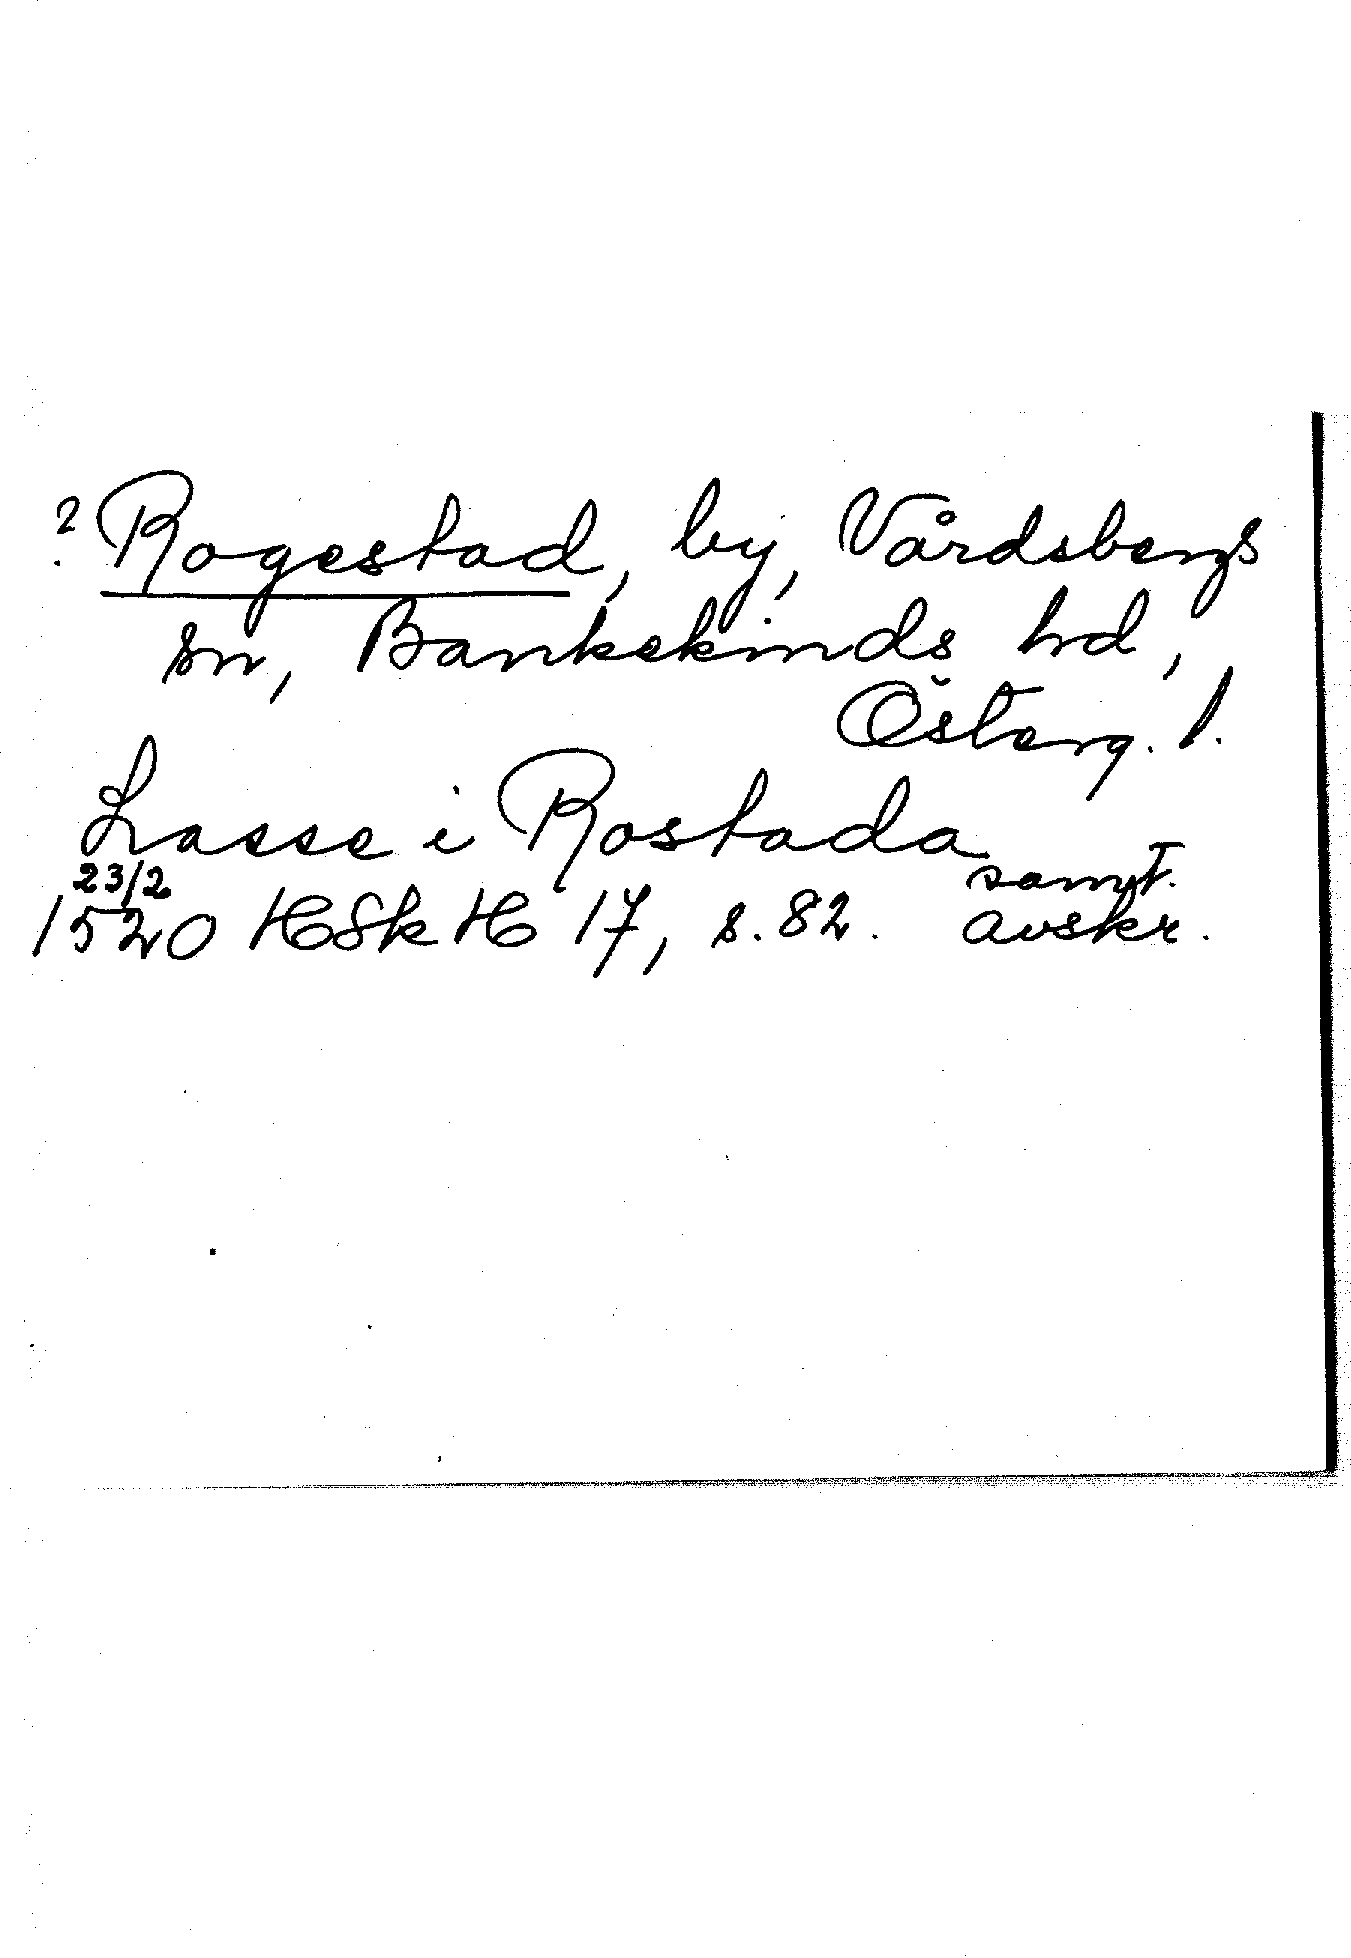 ? Rogestad, by, Vårdsbergs
sn, Bankekinds hd,
Österg. l.
Lasse i Rostada
23/2
1520 HSkH 17, s. 82. samt. avskr.